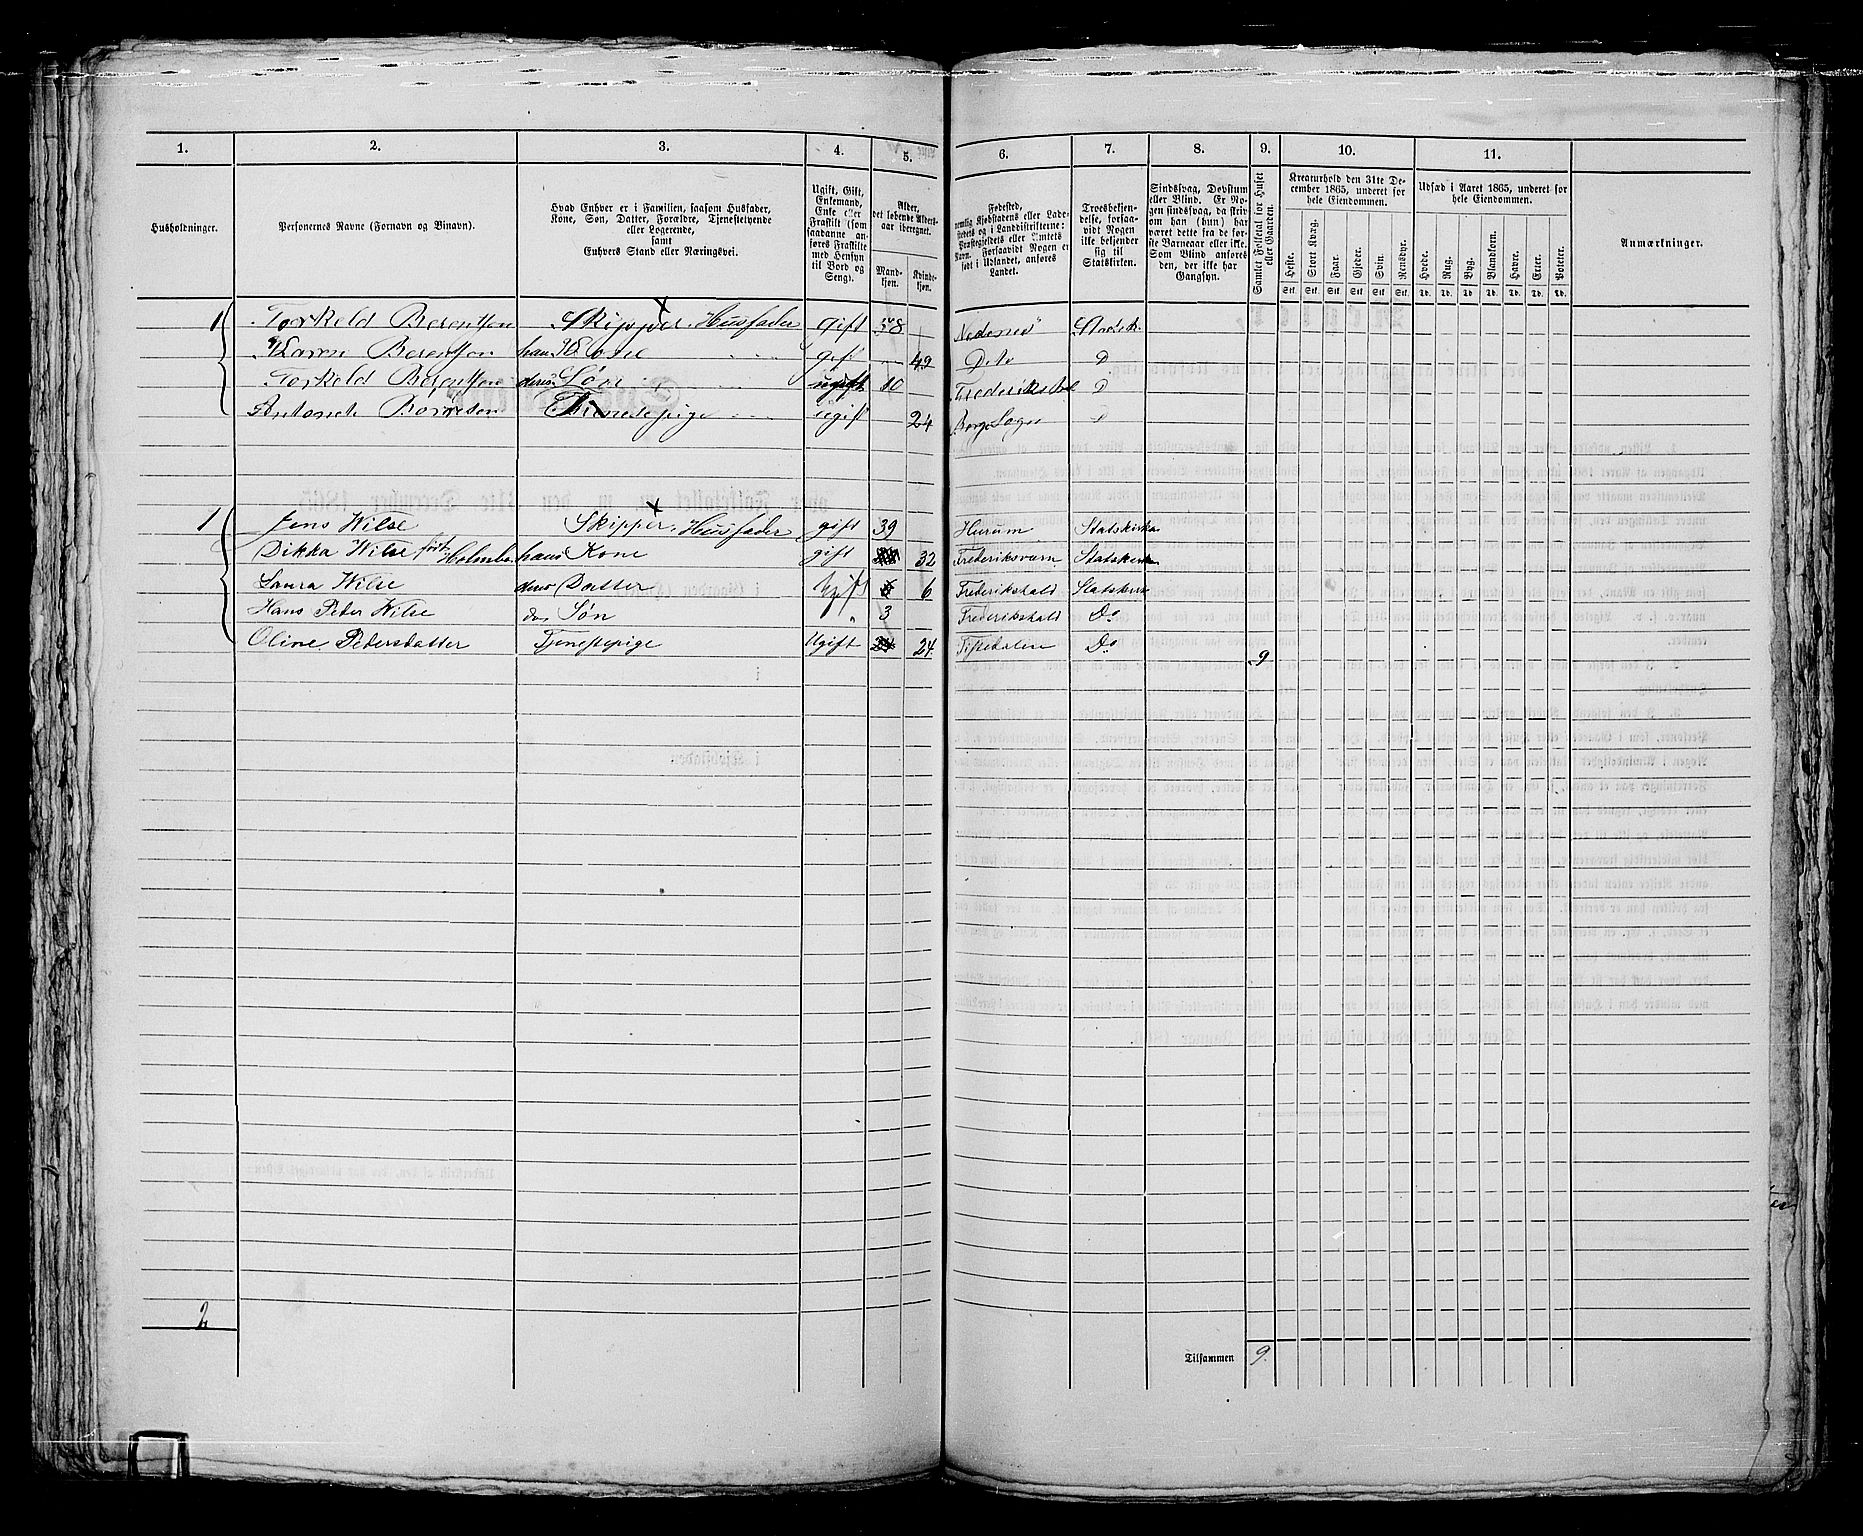 1. 2. 3. 4. 5. 6. 7. 8. 9. 10. 11.
Husholdninger.
Personernes Navne (Fornavn og Binavn).
Hvad Enhver er i Familien, saasom Husfader, Kone, Søn, Datter, Forældre, Tjenestetyende eller Logerende, samt Enhvers Stand eller Næringsvei.
Ugift, Gift, Enkemand, Enke eller Fraskilt (som saadanne anføres Fraskilte med Hensyn til Bord og Seng).
Alder, det løbende Alders-aar iberegnet. Mand-kjøn. Kvinde-kjøn.
Fødested, nemlig Kjøbstadens eller Ladestedets og i Landdistrikterne: Præstegjeldets eller Amtets Navn. Forsaavidt Nogen er født i Udlandet, anføres Landet.
Troesbekjendelse, forsaavidt Nogen ikke bekjender sig til Statskirken.
Sindssvag, Døvstum eller Blind. Er Nogen sindssvag, da skriv om han (hun) har været dette fra de første Barneaar eller ikke. Som Blind anføres den, der ikke har Gangsyn.
Samlet Folketal for Huset eller Gaarden.
Kreaturhold den 31te December 1865, underet for hele Eiendommen.
Heste. Stort Kvæg. Faar. Gjeder. Svin. Rensdyr.
Stk. Stk. Stk. Stk. Stk. Stk.
Udsæd i Aaret 1865, underet for hele Eiendommen.
Hvede. Rug. Byg. Blandkorn. Havre. Erter. Poteter.
Td. Td. Td. Td. Td. Td. Td.
Anmærkninger.
1 Torkeld Berentsen Skipper, Husfader gift 58 Nedenes Statsk.
Karen Berentsen hans Kone gift 49 Dito D
Torkeld Berentsen deres Søn ugift 10 Frederikshal D
Tjenestepige ugift 24 Borge Sogn D
1 Jens Wilse Skipper, Husfader gift 39 Hurum Statskirke
Dikka Wilse født Holmbo hans Kone gift 32 Frederiksværn Statskirke
Laura Wilse deres Datter Ugift 6 Frederikshald Statskirke
Hans Peder Wilse do Søn " 3 Frederikshald Do
Oline Pedersdatter Tjenestepige Ugift 24 24. Tistedalen Do 9
2
Tilsammen 9.